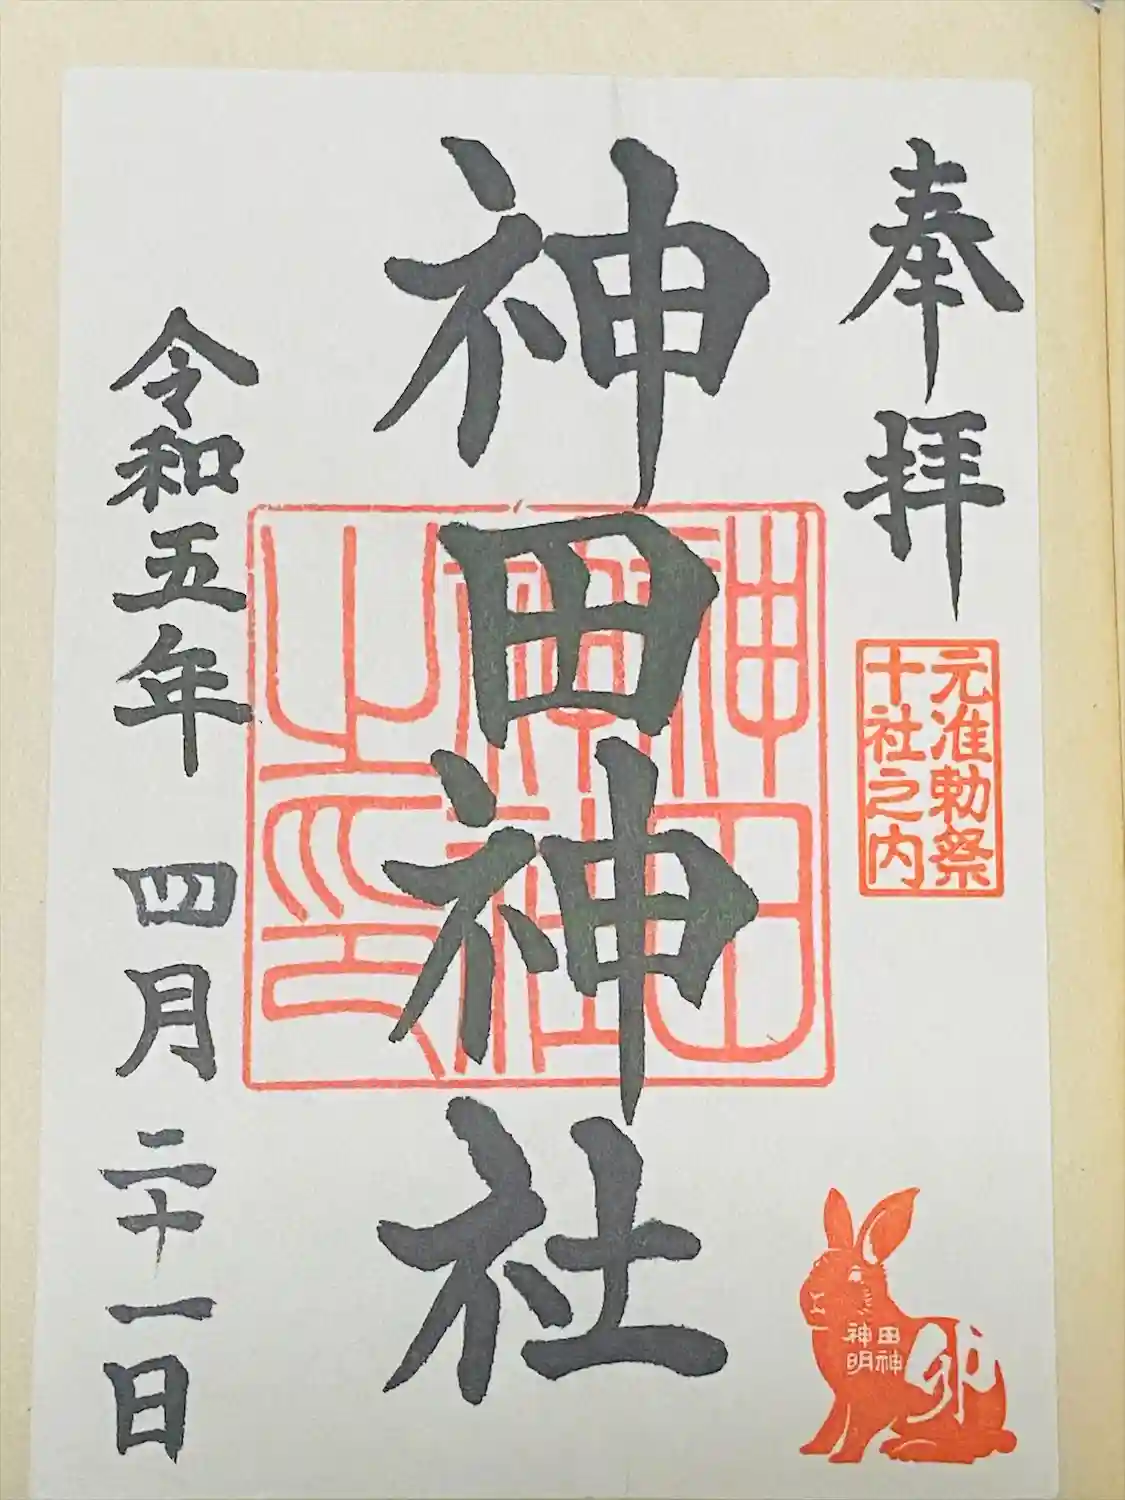 奉拝
元准勅祭
十社之内
神田神社
神田
神社
之印
令和五年 四月 二十一日
田神
神明
卯